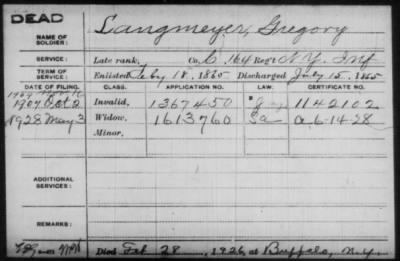 DEAD
NAME OF SOLDIER: Langmeyer, Gregory
SERVICE: Late rank, Co. C, 164 Reg't N.Y. Inf
TERM OF SERVICE: Enlisted Feby 18, 1865 Discharged July 15, 1865
DATE OF FILING. CLASS. APPLICATION NO. LAW. CERTIFICATE NO.
1907 Oct 2 Invalid, 1367450 1142102
1928 May 3 Widow, 1613760 a 6-14-28
Minor,
ADDITIONAL SERVICES:
REMARKS:
Died Feb 28, 1926, at Buffalo, N.Y.